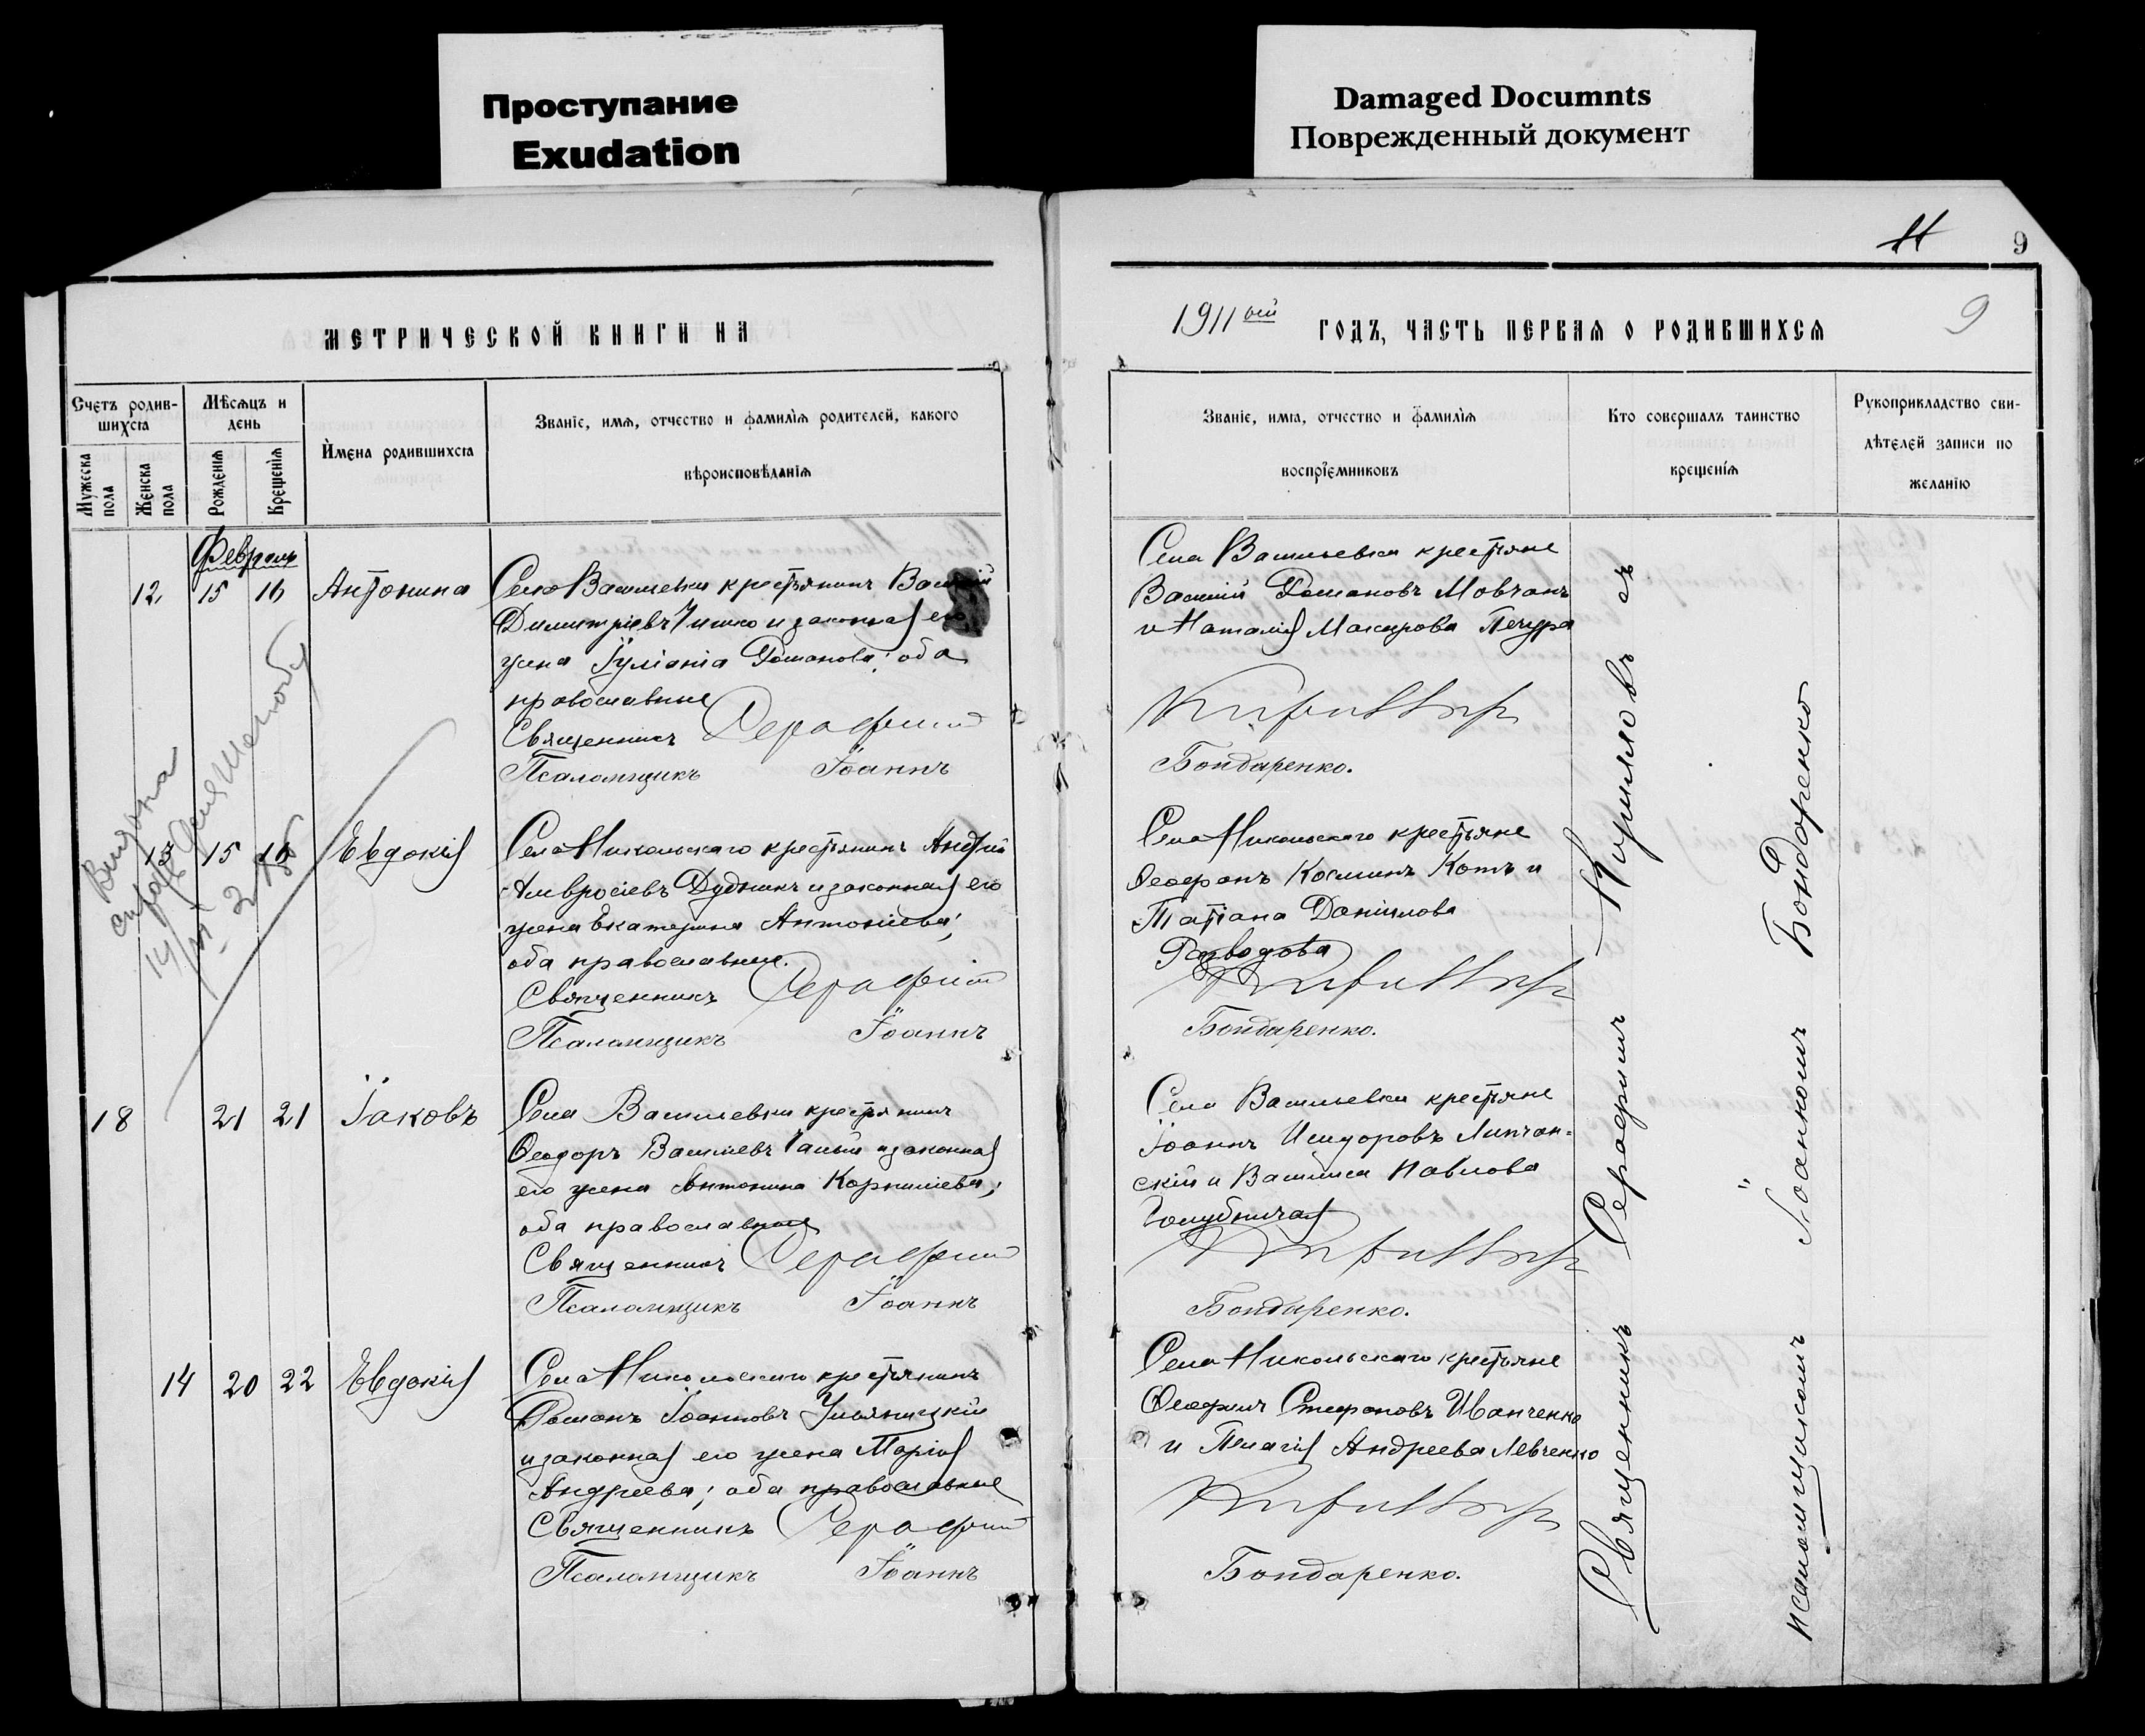 Проступание
Exudation
Damaged Documnts
Поврежденный документ
11
9
МЕТРИЧЕСКОЙ КНИГИ НА
1911ый ГОДЪ, ЧАСТЬ ПЕРВАЯ О РОДИВШИХСЯ
9
Счетъ родив-
шихся
Мѣсяцъ и
день
Мужеска
пола
Женска
пола
Рожденія
Крещенія
Имена родившихся
Званіе, имя, отчество и фамилія родителей, какого
вѣроисповѣданія
Званіе, имя, отчество и фамилія
воспріемниковъ
Кто совершалъ таинство
крещенія
Рукоприкладство сви-
дѣтелей записи по
желанію
Февраль
12. 15 16 Антонина
Село Васильевки крестьянинъ Василій
Димитріевъ и законная его
жена Іуліанія Романова; оба
православные
Священникъ Серафимъ
Псаломщикъ Іоаннъ
Села Васильевки крестьяне
Василій Романовъ Мовчанъ
и Наталія Макарова Печура
Кирилловъ
Бондаренко.
Выдана
14/VI 2
13 15 16 Евдокія
Села Никольскаго крестьянинъ Андрей
Амвросіевъ Дудникъ и законная его
жена Екатерина Антоніева;
оба православные.
Священникъ Серафимъ
Псаломщикъ Іоаннъ
Села Никольскаго крестьяне
Ѳеофанъ Косминъ Котъ и
Татіана Даніилова
Разводова
Кирилловъ
Бондаренко.
18 21 21 Іаковъ
Села Васильевки крестьянинъ
Ѳеодоръ Василіевъ и законная
его жена Антонина Корниліева;
оба православные
Священникъ Серафимъ
Псаломщикъ Іоаннъ
Села Васильевки крестьяне
Іоаннъ Исидоровъ Липчан-
скій и Василиса Павлова
Голубничая
Кирилловъ
Бондаренко.
14 20 22 Евдокія
Села Никольскаго крестьянинъ
Романъ Іоанновъ Ульяницкій
и законная его жена Марія
Андреева; оба православные
Священникъ Серафимъ
Псаломщикъ Іоаннъ
Села Никольскаго крестьяне
Ѳеофилъ Стефановъ Иванченко
и Пелагія Андреева Левченко
Кирилловъ
Бондаренко.
Священникъ Серафимъ Кирилловъ съ
псаломщикомъ Іоанномъ Бондаренко